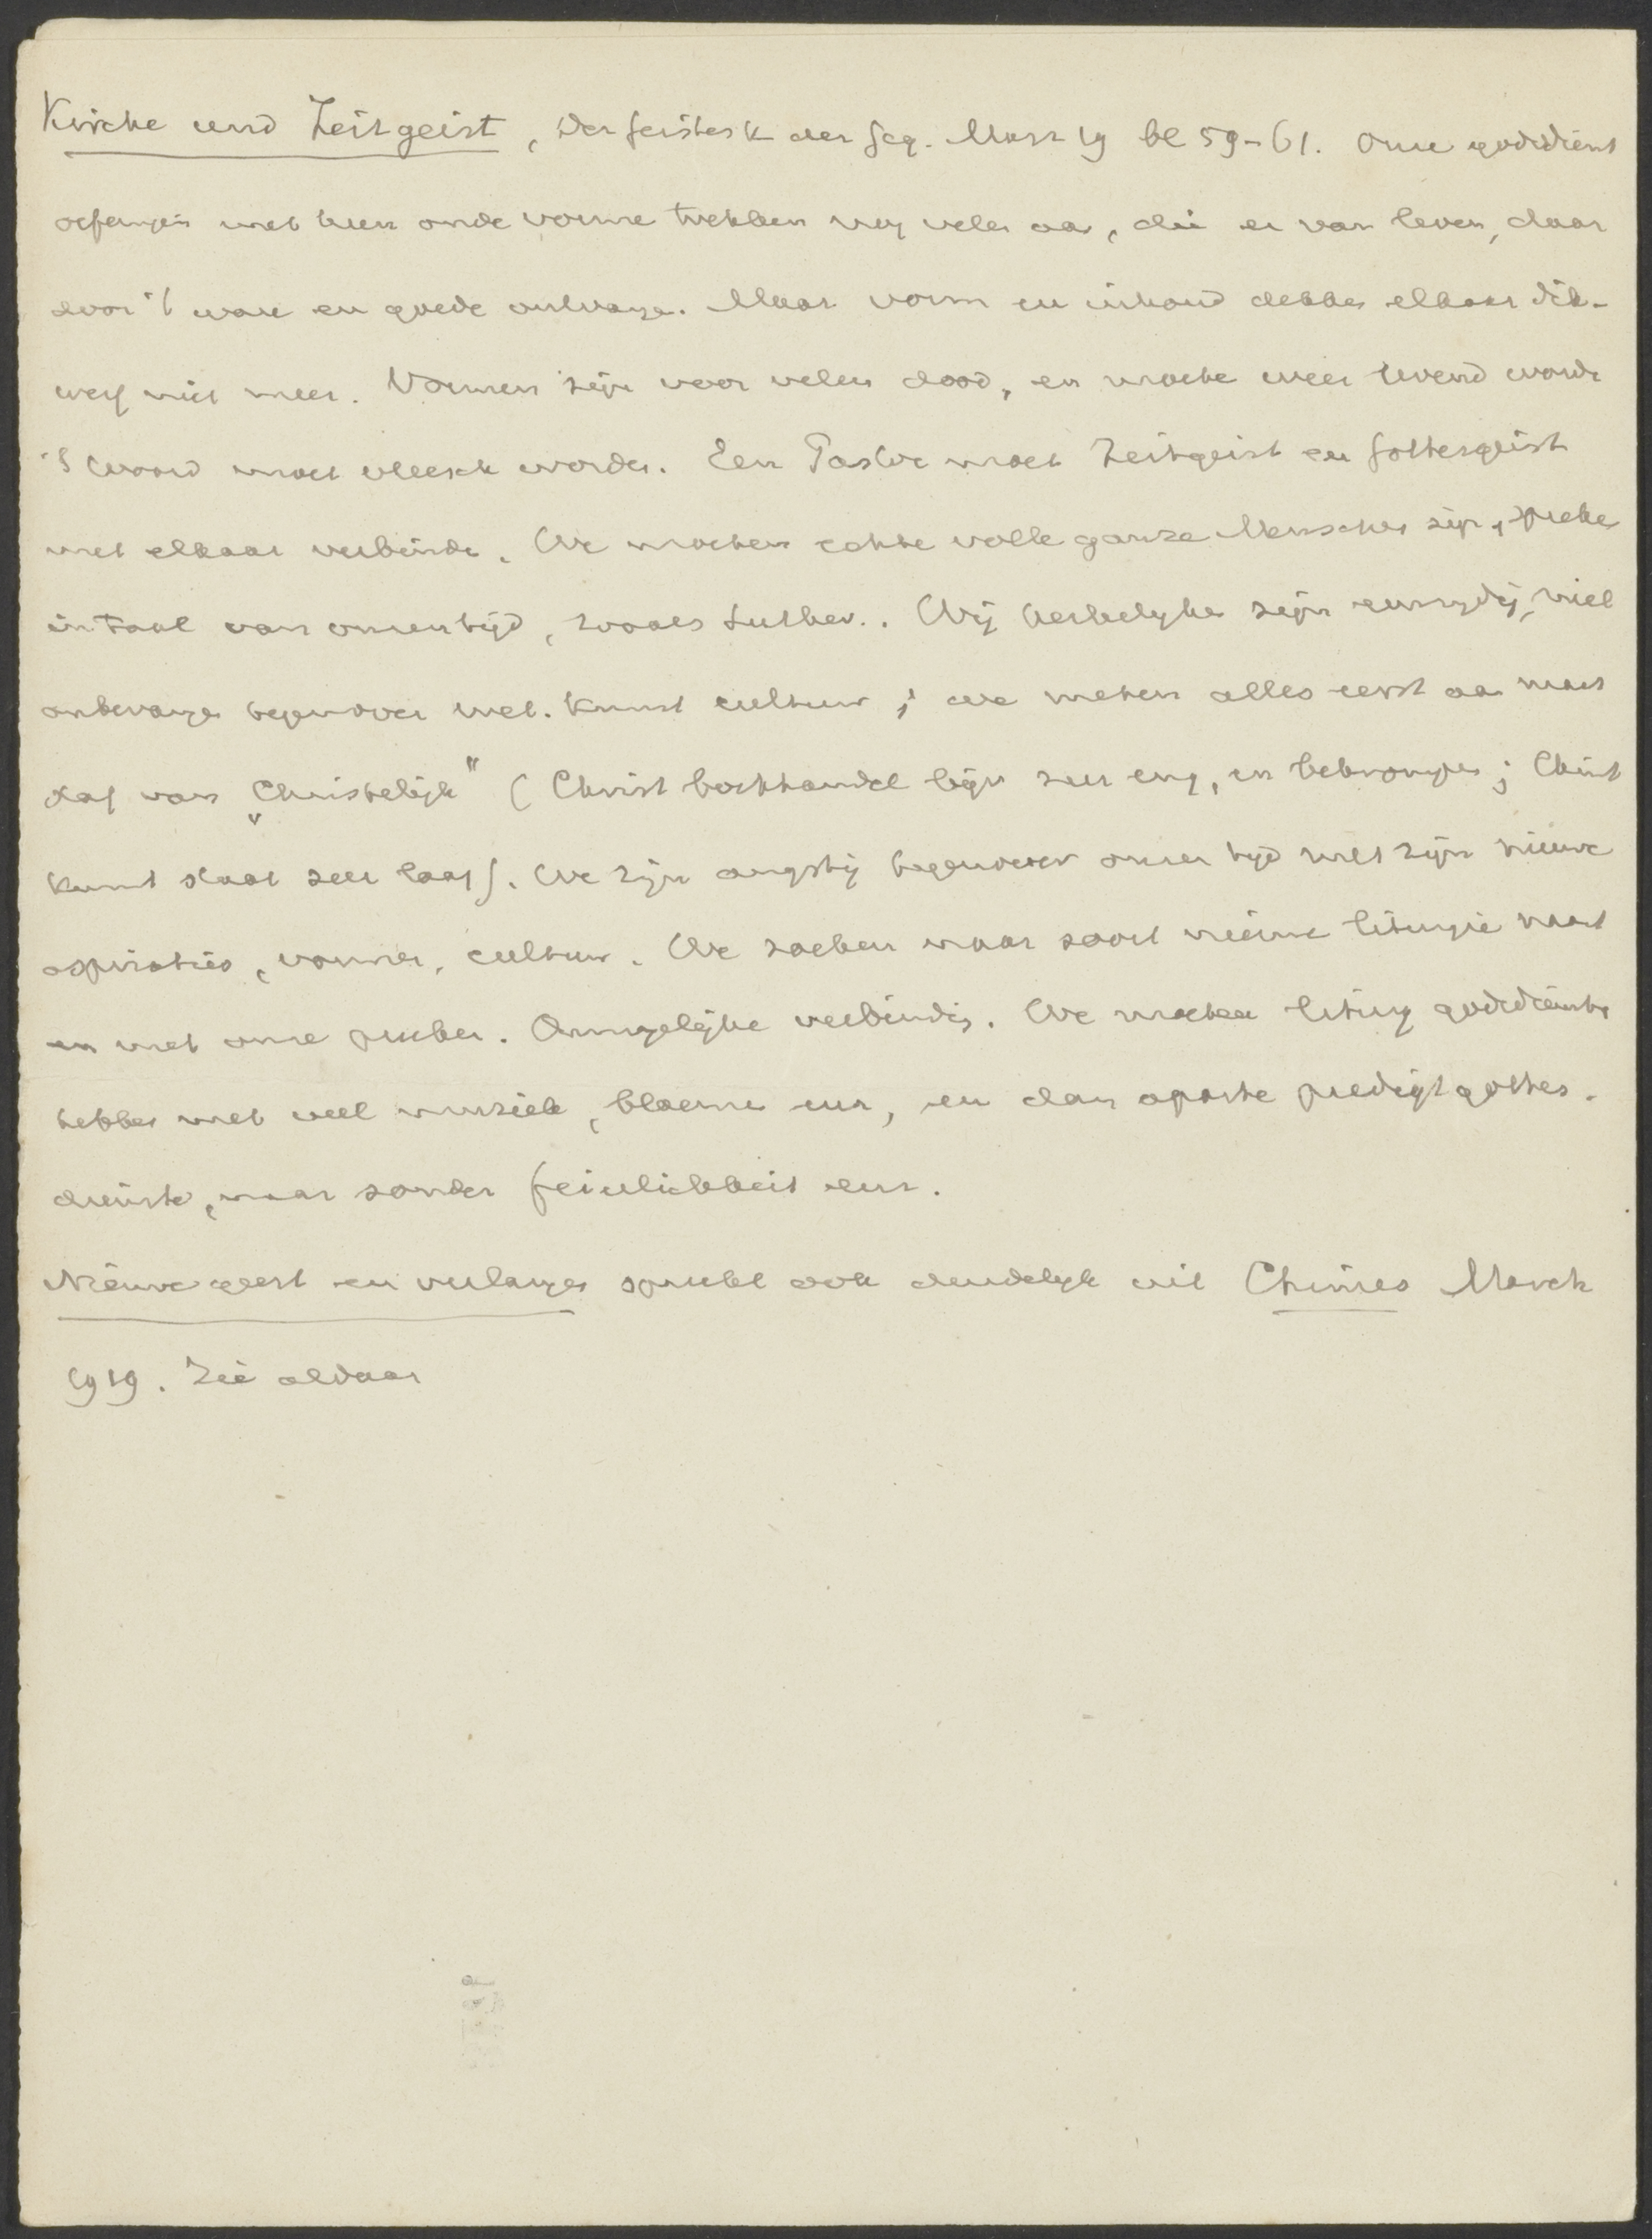 Kirche und Zeitgeist, Der Geistesk der Geg. März 19 bl 59-61. Onze godsdienst
oefeningen met hun oude vorme trekken nog vele aa, die er van leven, daar
door 't ware en goede ontvange. Maar vorm en inhoud dekke elkaar dik-
werf niet meer. Vormen zijn voor velen dood, en moete weer levend worde
't Woord moet vleesch worde. Een Pastor moet Zeitgeist en Gottesgeist
met elkaar verbinde. We moeten echte volle ganze Menschen zijn, spreke
in taal van onzen tijd, zooals Luther.. Wij kerkelyke zijn eenzydig, niet
onbevange tegenover wet. kunst cultuur; we meten alles eerst aa maat
staf van "Christelijk" (Christ boekhandel bijv zeer eng, en bekrompen; Christ
kunst staat zeer laag). We zijn angstig tegenover onzen tijd met zijn nieuwe
aspiraties, vormen, cultuur. We zoeken maar soort nieuwe liturgie naast
en met onze preeken. Onmogelijke verbinding. We moeten liturg godsdienste
hebben met veel muziek, bloeme enz, en dan aparte predigtgottes.
dienste, maar zonder feierlichkeit enz.
Nieuwe geest en verlange spreekt ook duidelyk uit Chimes March
1919. Zie aldaar